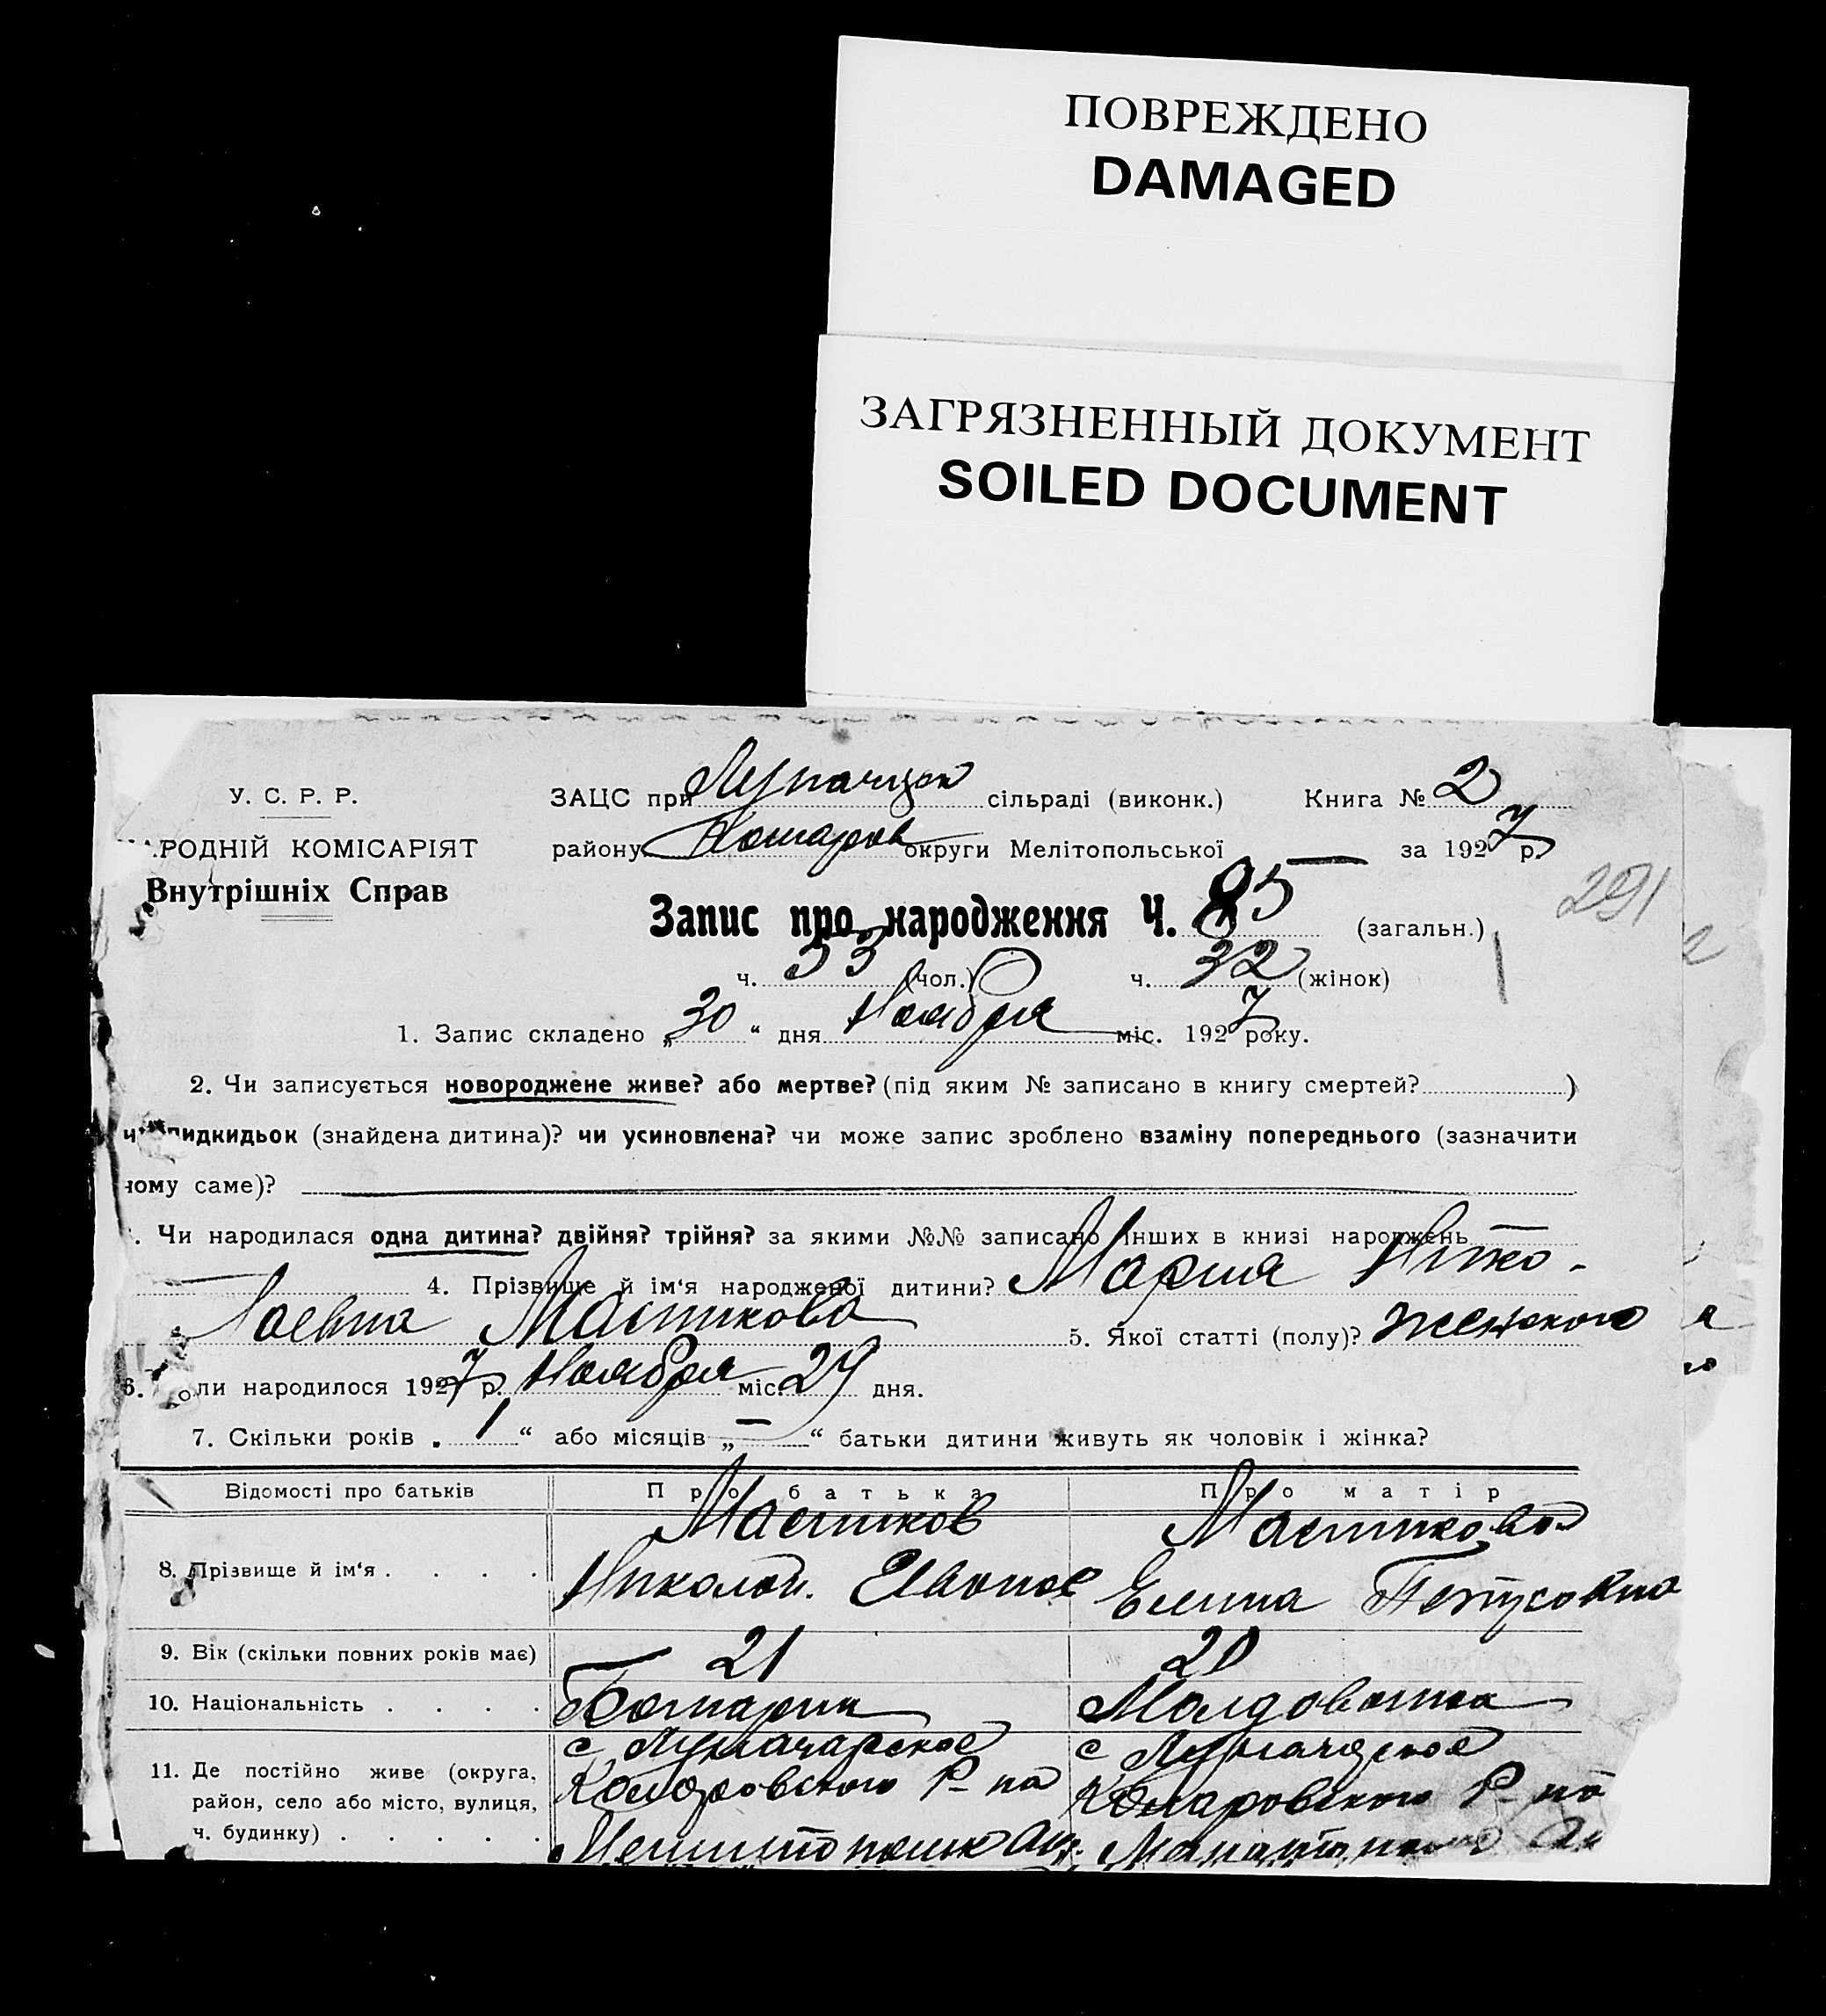 ПОВРЕЖДЕНО
DAMAGED
ЗАГРЯЗНЕННЫЙ ДОКУМЕНТ
SOILED DOCUMENT
У. С. Р. Р.
ЗАЦС при сільраді (виконк.) Книга № 2
.РОДНІЙ КОМІСАРІЯТ
району округи Мелітопольської — за 1927 р.
Внутрішніх Справ
291
Запис про народження Ч. 85 (загальн.)
ч. 53 (чол.) ч. 32 (жінок)
1. Запис складено „30“ дня Ноября міс. 1927 року.
2. Чи записується новороджене живе? або мертве? (під яким № записано в книгу смертей? )
підкидьок (знайдена дитина)? чи усиновлена? чи може запис зроблено взаміну попереднього (зазначити
чому саме)?
. Чи народилася одна дитина? двійня? трійня? за якими №№ записано інших в книзі народжень —
4. Прізвище й ім‘я народженої дитини? Мария Нико-
лаевна Мастикова 5. Якої статті (полу)? женского
6. Коли народилося 1927 р. Ноября міс. 29 дня.
7. Скільки років „1“ або місяців „—“ батьки дитини живуть як чоловік і жінка?
Відомості про батьків Про батька Про матір
Мастиков Мастикова
8. Прізвище й ім‘я . . . . Николай. Иванов Елена
9. Вік (скільки повних років має) 21 20
10. Національність . . . . Болгарин Молдованка
с Луначарское с Луначарское
11. Де постійно живе (округа, Комаровского Р-на Комаровского Р-на
район, село або місто, вулиця,
ч. будинку) . . . . .